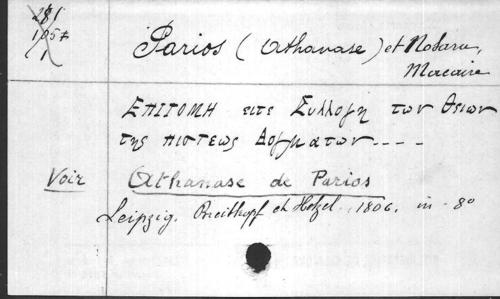 281
1057
1
Parios (Athanase) et Notara,
Macaire
ΕΠΙΤΟΜΗ ειτε Συλλογη των θειων
της πιστεως Δογματων ----
Voir Athanase de Parios
Leipzig. Breitkopf et Hetzel. 1806. in - 8º